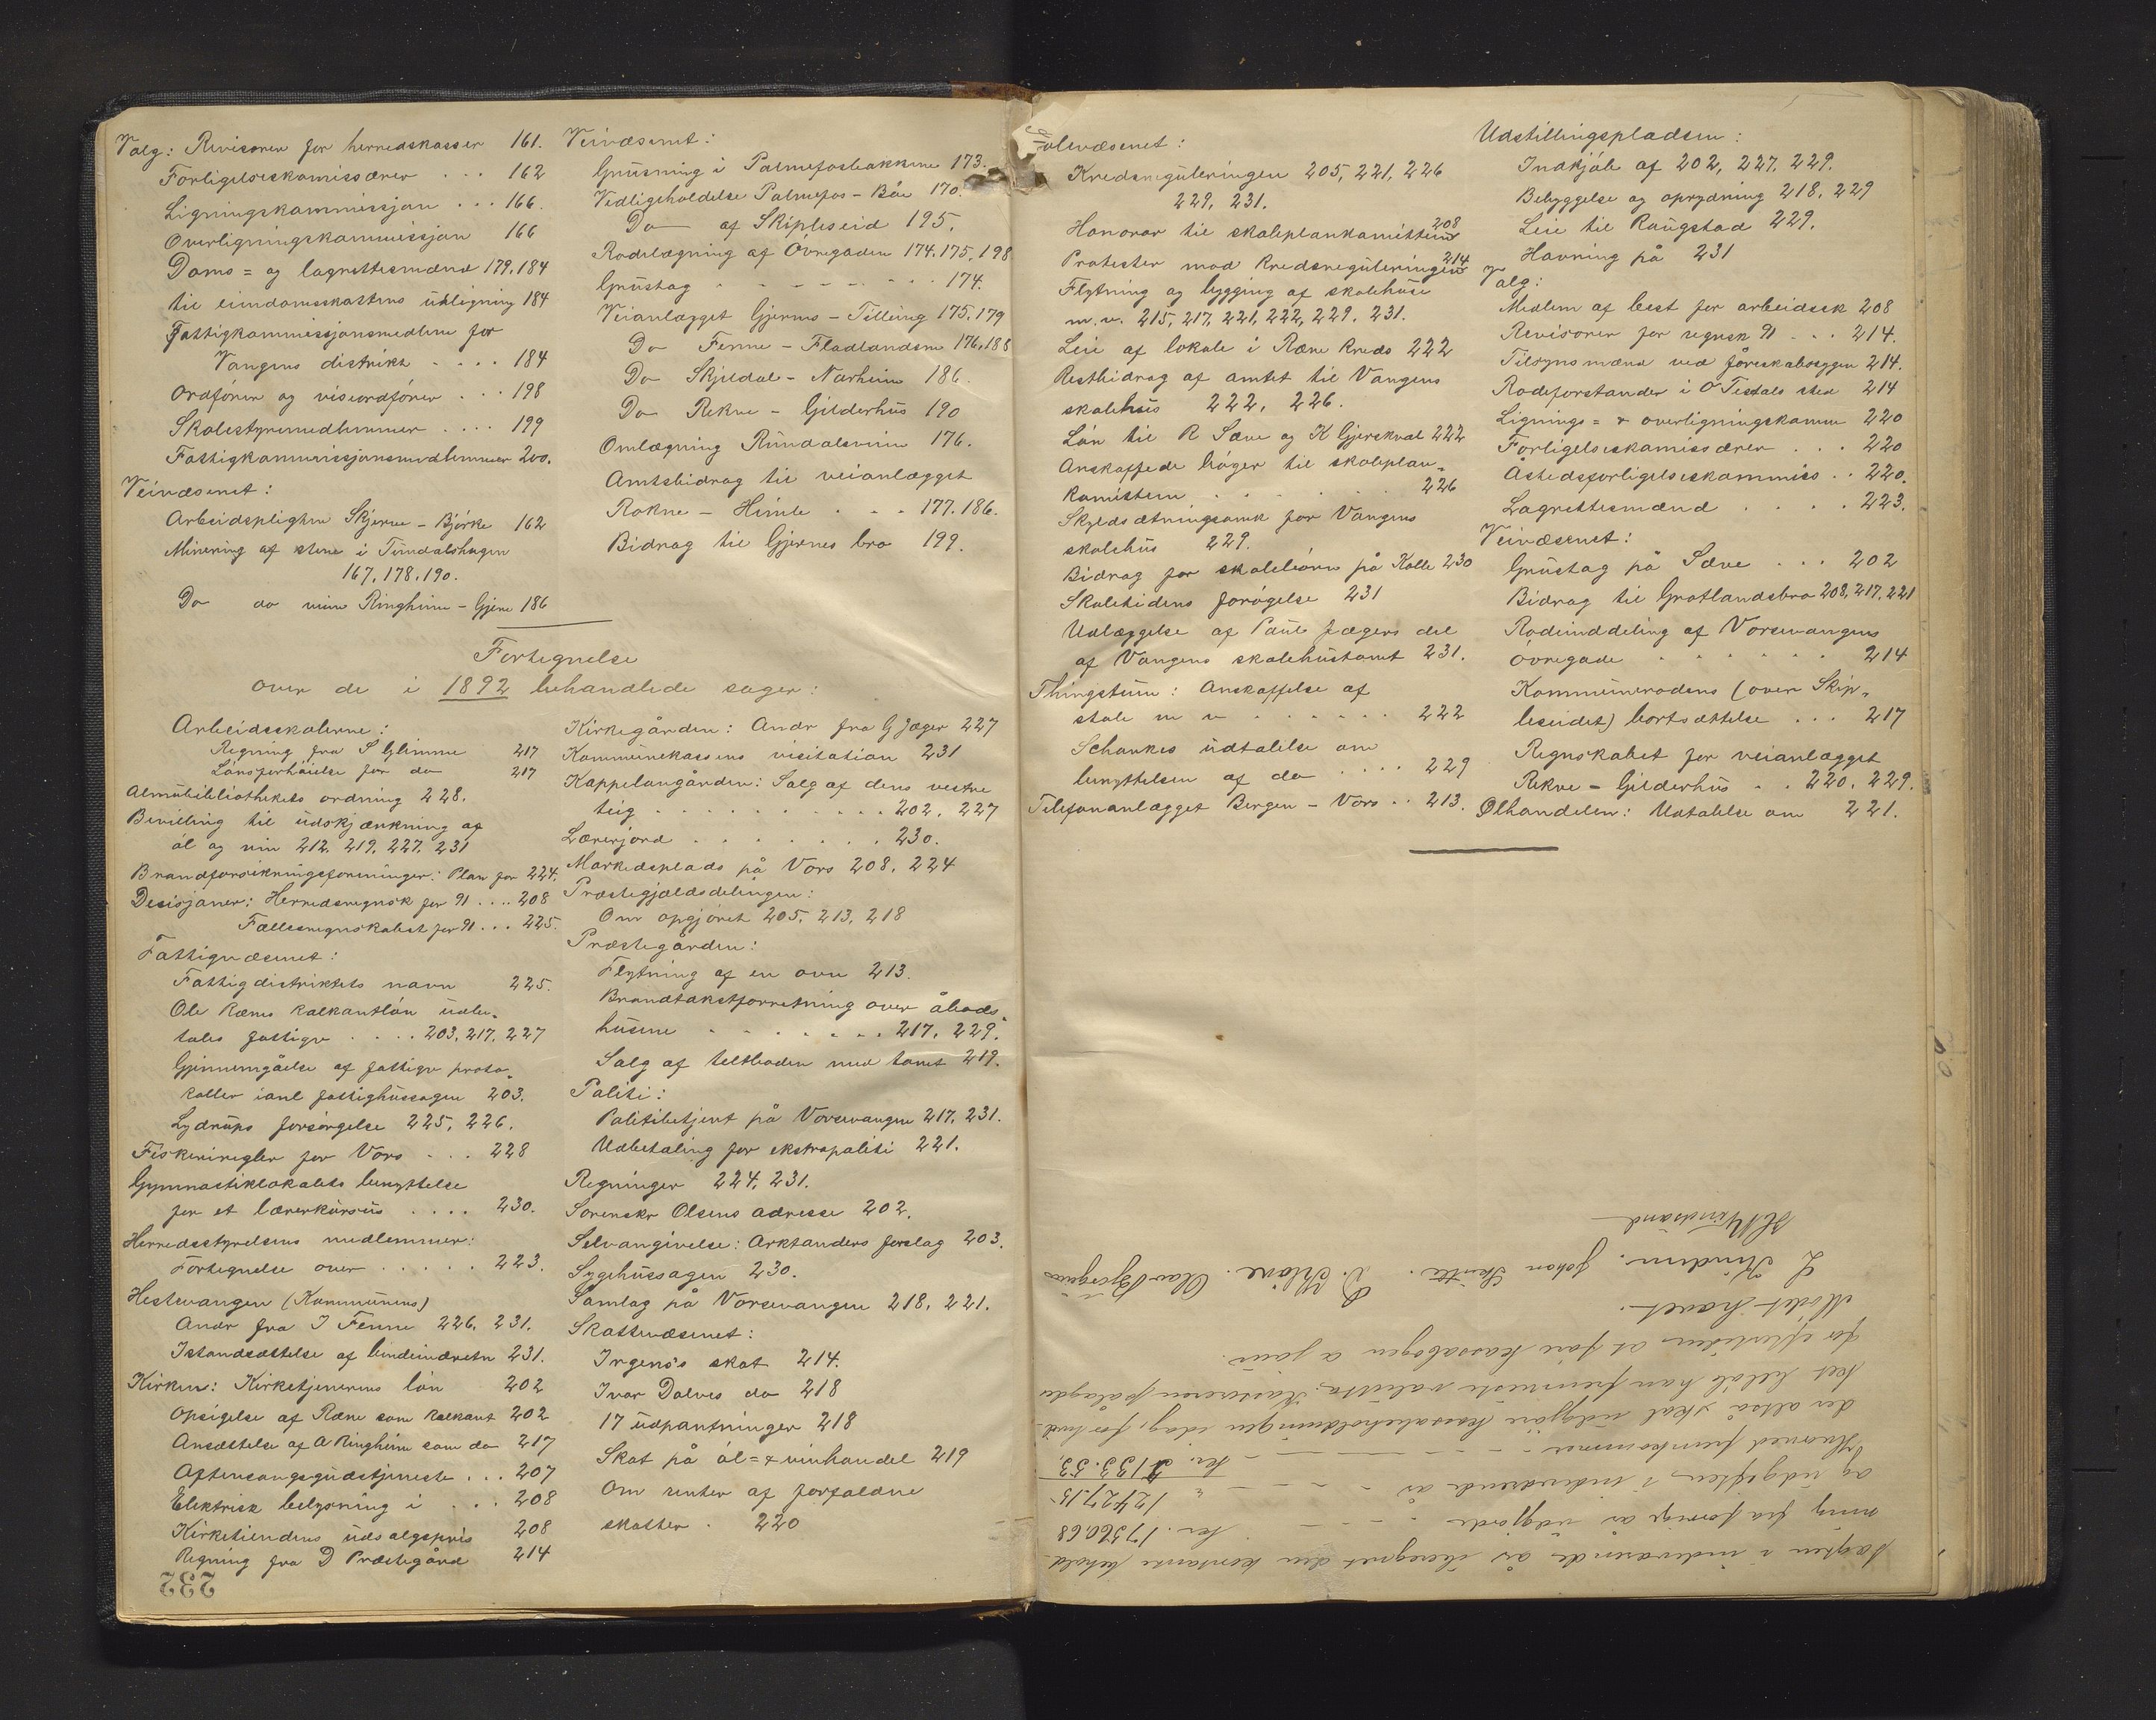 Valg: Revisorer for herredskasser 161.
Forligelseskomissærer . . . 162
Ligningskommissjon . . . 166.
Overligningskommissjon 166
Doms= og lagrettesmænd 179, 184
til eiendomsskattens utligning 184
Fattigkommissjonsmedlem for
Vangens distrikt . . . . 184
Ordförer og viseordförer . . . 198
Skolestyremedlemmer . . . . 199
Fattigkommissjonsmedlemmer 200.
Veivæsenet:
Arbeidspligten Skjerve - Björke 162
Minering af stene i
167, 178, 190.
Do do veien Ringheim - Gjerne 186
Veivæsenet:
Grusning i Palmefosbakkene 173.
Vedligeholdelse Palmefos - Böe 170.
Do af Skipleseid 195.
Rodelægning af Övregaden 174, 175, 198
Grustag . . . . . . . . 174.
Veianlægget Gjernes - Tillung 175, 179
Do Fenne - Fladlandsm 176, 188
Do Skjeldal - Nærheim 186.
Do Rekve - Gjelderhus 190
Omlægning Rundalsveien 176.
Amtsbidrag til veianlægget
Rokne - Himle . . . 177. 186.
Bidrag til Gjernes bro 199.
Fortegnelse
over de i 1892 behandlede sager:
Arbeidsskolerne:
Regning fra S Glimme 217
Lönsforhöielse for do 217
Almubibliothekets ordning 228.
Bevilling til udskjænkning af
öl og vin 212, 219, 227, 231
Brandforsikringsforeninger: Plan for 224.
Desisjoner: Herredsregnsk for 91 . . . . 208
Fællesregnskabet for 91 . . . 225.
Fattigvæsenet:
Fattigdistriktets navn 225.
Ole Rænes kalkantlön udbe-
tales fattigv . . . . 203, 217, 227
Gjennemgåelse af fattigv proto-
koller ianl fattighussagen 203.
Lydrups forsörgelse 225, 226.
Fiskeriregler for Vors . . . 228
Gymnastiklokalets benyttelse
for et lærerkursus . . . . 230.
Herredsstyrelsens medlemmer:
Fortegnelse over . . . . . 223.
Hestevangen (Kommunens)
Andr fra I Fenne 226, 231.
Istandsættelse af bindeindretn 231.
Kirken: Kirketjenerens lön 202
Opsigelse af Ræne som kalkant 202
Ansættelse af A Ringheim som do 217
Aftensangsgudstjeneste . . . 207
Elektrisk belysning i . . . 208
Kirketiendens udsalgspris 208
Regning fra D Præstegård 214
232
Kirkegården: Andr fra G Jæger 227
Kommunekassens visitation 231
Kappelangården: Salg af dens vestre
teig . . . . . . . . . . 202, 227
Lærerjord . . . . . . . . 230.
Markedsplads på Vors 208, 224
Præstegjældsdelingen:
Om opgjöret 205, 213, 218
Præstegården:
Flytning af en ovn 213.
Brandtakstforretning over åbods-
husene . . . . . . . 217, 229.
Salg af teltboden med tomt 219.
Politi:
Politibetjent på Vossevangen 217, 231.
Udbetaling for ekstrapoliti 221.
Regninger 224, 231.
Sorenskr Olsens adresse 202.
Selvangivelse: Arktanders forslag 203.
Sygehussagen 230.
Samlag på Vossevangen 218, 221.
Skattevæsenet:
Irgens's skat 214.
Ivar Dolves do 218
17 udpantninger 218
Skat på öl= & vinhandel 219
Om renter af forfaldne
skatter . 220
Skolevæsenet:
Kredsreguleringen 205, 221, 226
229, 231.
Honorar til skoleplankomitteen 208
Protester mod kredsreguleringen 214
Flytning og bygging af skolehuse
m. v. 215, 217, 221, 222, 229, 231.
Leie af lokale i Ræne kreds 222
Restbidrag af amtet til Vangens
skolehus 222, 226.
Lön til R Sæve og K Gjerskvål 222
Anskaffede böger til skoleplan-
komitteen . . . . . . 226
Skyldsætningsomk for Vangens
skolehus 229.
Bidrag for skolebörn på Kolle 230
Skoletidens forögelse 231
Udlæggelse af Paul Jægers del
af Vangens skolehustomt 231.
Thingstuen: Anskaffelse af
stole m v . . . . . . . 222
Schankes udtalelse om
benyttelsen af do . . . . 229
Telefonanlægget Bergen - Vors . . 213.
Udstillingspladsen:
Indkjöb af 202, 227, 229.
Bebyggelse og oprydning 218, 229
Leie til Raugstad 229.
Havning på 231
Valg:
Medlem af best for arbeidssk 208
Revisorer for regnsk 91 . . . 214.
Tilsynsmænd ved föreskabsbyggen 214.
Rodeforstander i O Tesdals sted 214
Lignings= & overligningskomm 220
Forligelseskomissærer . . . 220
Åstedsforligelseskommiss . . 220.
Lagrettesmænd . . . . . 223.
Veivæsenet:
Grustag på Sæve . . . 202
Bidrag til Grotlandsbro 208, 217, 221
Rodeinddeling af Vossevangens
övregade . . . . . . . 214
Kommunerodens (over Skip-
leseidet) bortsættelse . . . 217
Regnskabet for veianlægget
Rekve - Gjelderhus . . 220, 229.
Ølhandelen: Udtalelse om 221.
ning fra forrige år udgjorde . . . kr. 17360.68
og udgiften i indeværende år . . . " 12427.15
kr. 2133.53,
Hvorved fremkommer
der altså skal udgjöre kassabeholdningen idag, for hvil-
ket belöb han fremviste valutta. Kassereren pålagdes
for eftertiden at före kassabogen a jour.
Mödet hævet.
L Kindem. Johan Skutle. D. Kløve. Olav Bjørgum